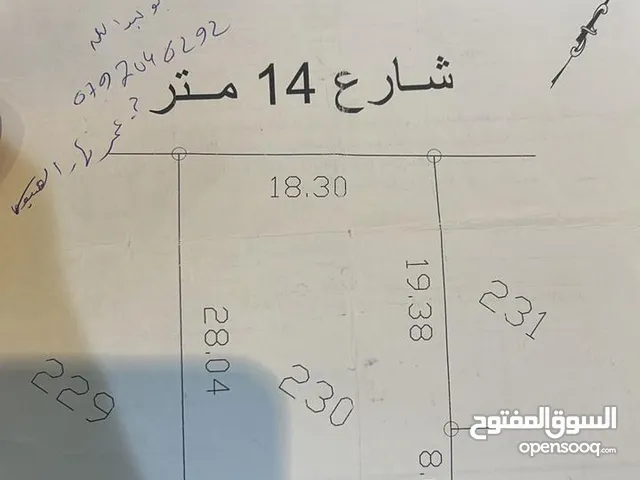 0797046292
شارع 14 متر
18.30
19.38
28.04
231
230
229
8.
السوق المفتوح
opensooq.com